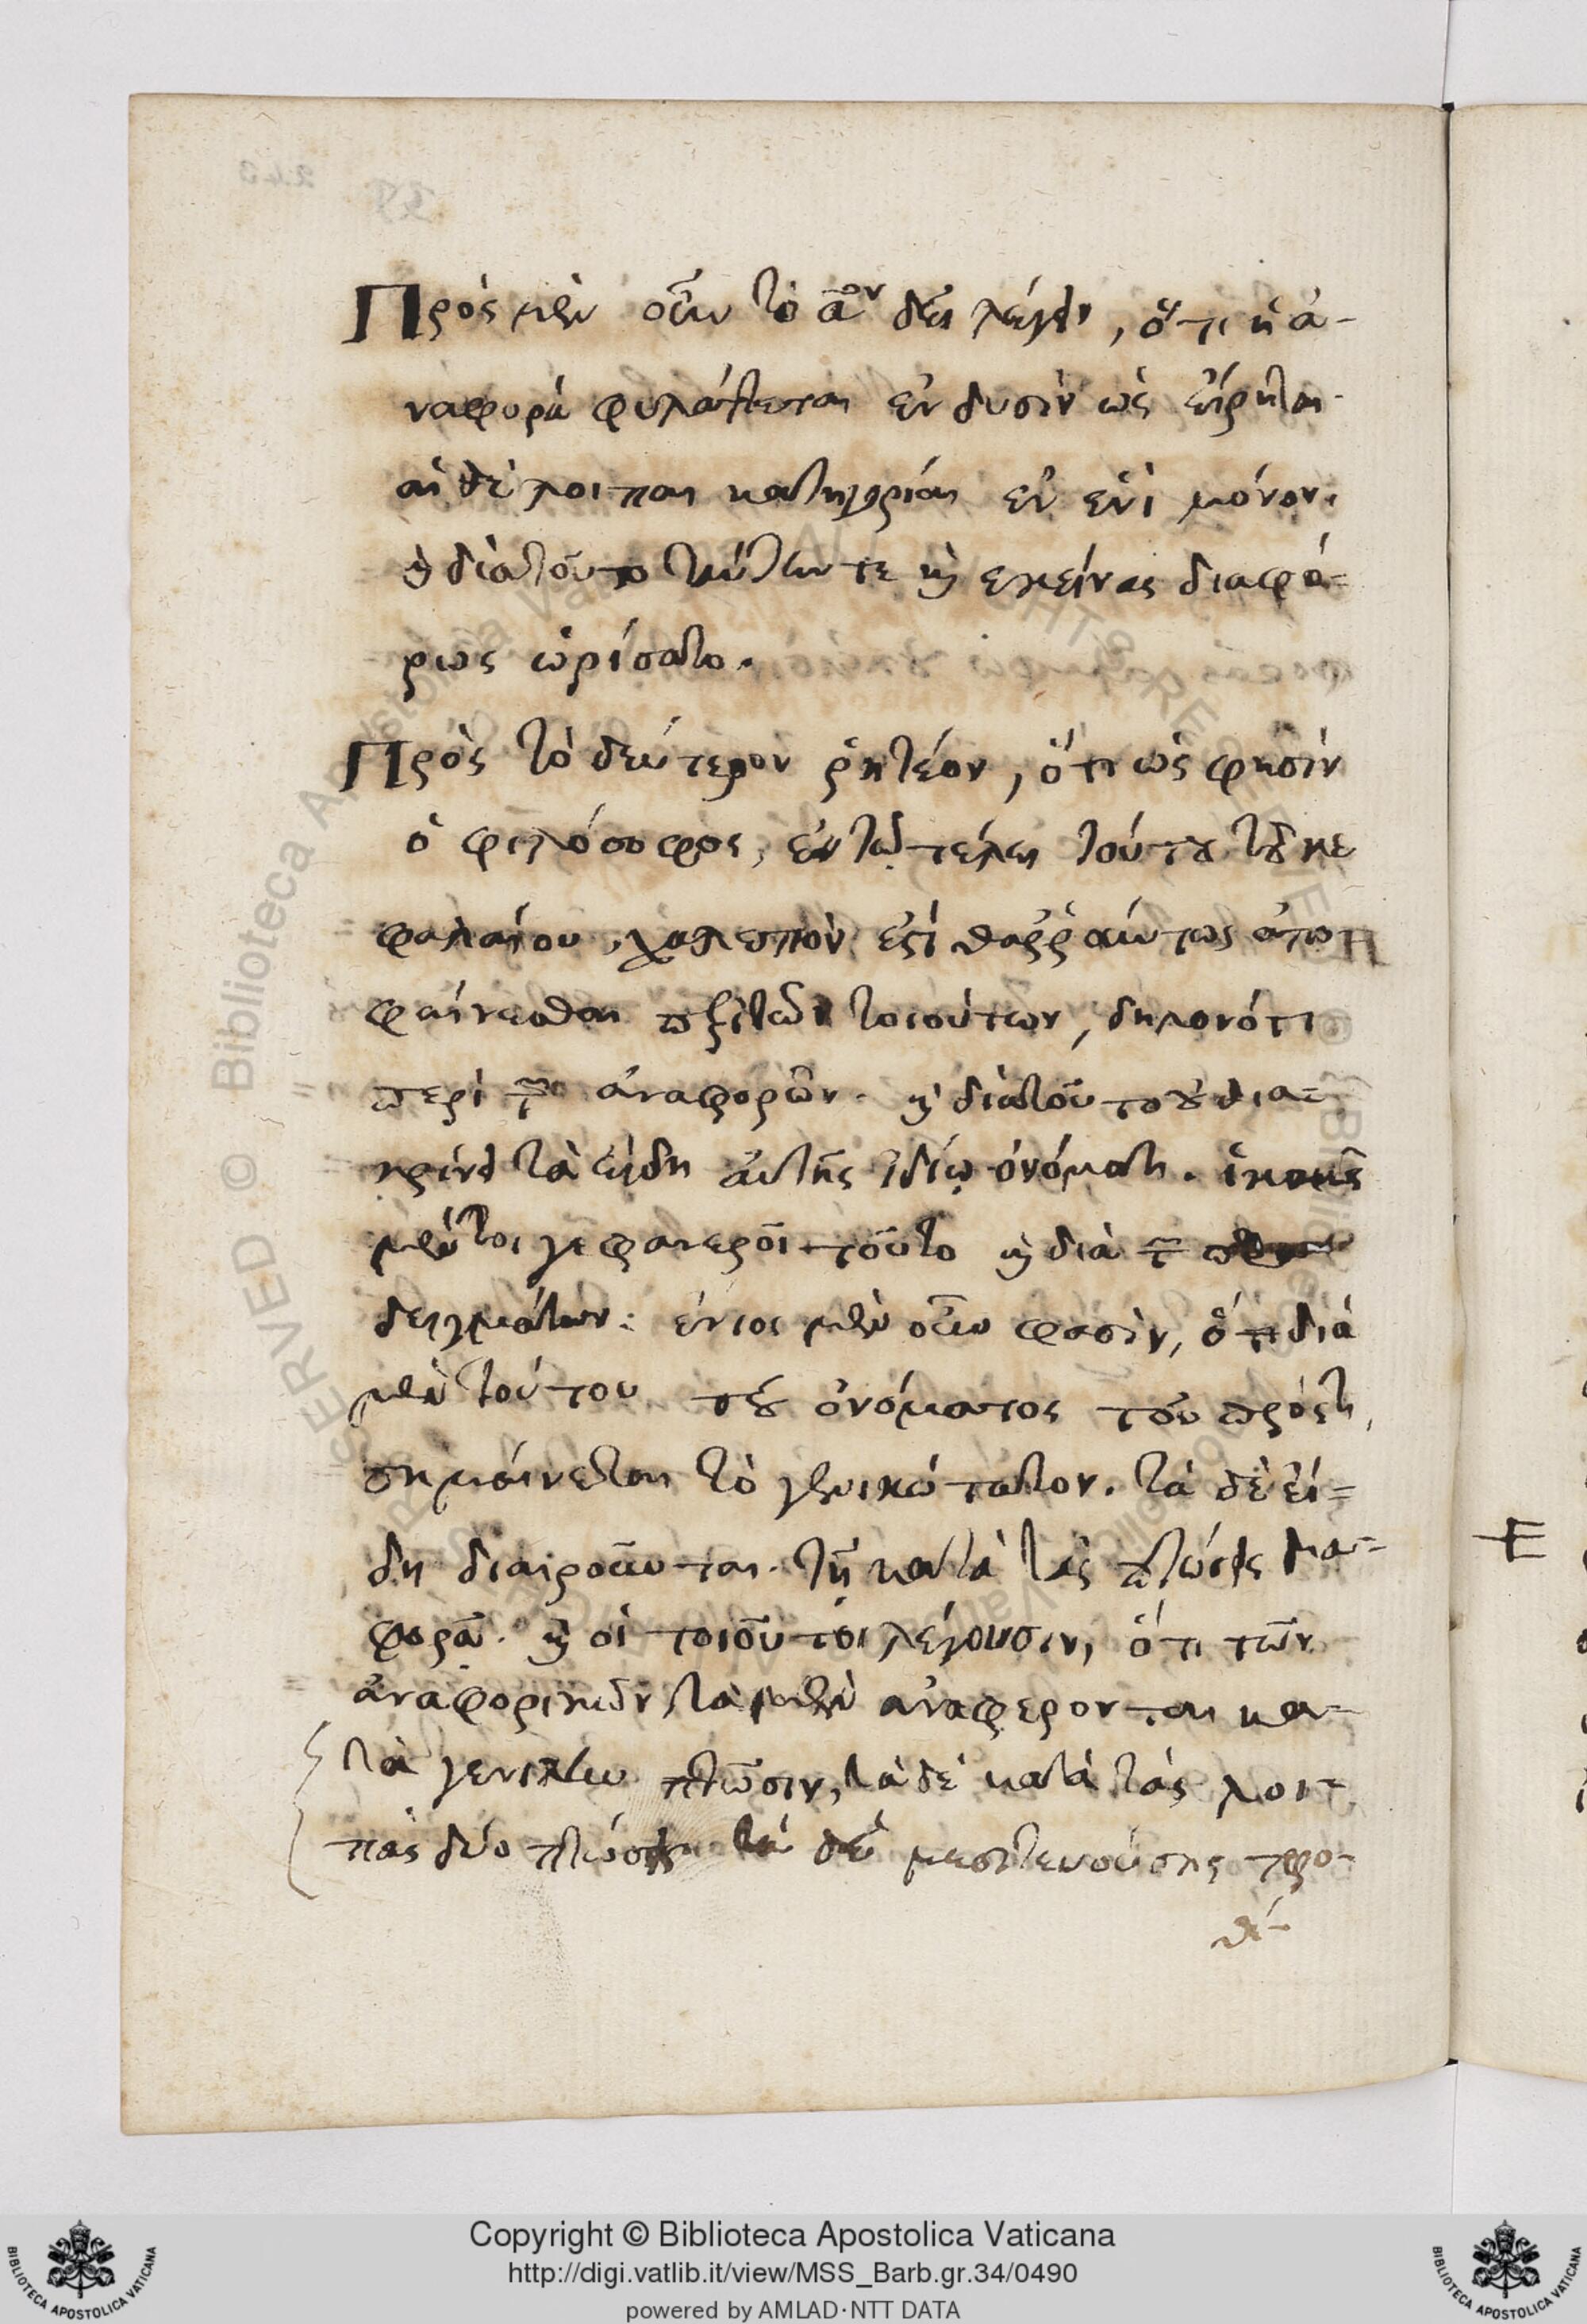 Πρὸς μὲν οὖν τὸ α͞ον δεῖ λέγειν, ὅτι ἡ ἀ-
ναφορὰ φυλάττεται ἐν δυσὶν ὡς εἴρηται·
αἱ δὲ λοιπαι κατηγορίαι ἐν ἑνὶ μόνον.
καὶ διὰ τοῦτο ταύτην τε καὶ ἐκείνας διαφό=
ρως ὡρίσατο.
Πρὸς τὸ δεύτερον ῥητέον, ὅτι ὡς φησὶν
ὁ φιλόσοφος, ἐν τῷ τέλει τούτου τοῦ κε
φαλαίου, χαλεπὸν ἐστὶ θαῤῥαύντως ἀπο
φαίνεσθαι περὶ τῶν τοιούτων, δηλονότι
περὶ τῶν ἀναφορῶν. καὶ διὰ τοῦτο οὐ δια=
κρίνει τὰ εἴδη αὐτῆς ἰδίῳ ὀνόματι. ἱκανῶς
μέντοι γε φανεροῖ τοῦτο καὶ διὰ τῶν
δειγμάτων: ἔνιοι μὲν οὖν φασὶν, ὅτι διὰ
μὲν τούτου τοῦ ὀνόματος τοῦ πρός τι,
σημαίνεται τὸ γενικώτατον. τὰ δὲ εἴ=
δη διαιροῦνται. τῇ κατὰ τὰς πτώσεις δια=
φορᾷ. καὶ οἱ τοιοῦτοι λέγουσιν, ὅτι τῶν
ἀναφορικῶν τὰ μὲν ἀναφερονται κα-
τὰ γενικὴν πτῶσιν, τὰ δὲ κατὰ τὰς λοι-
πὰς δύο πτώσεις μεσιτευούσης προ-
θέ-
Copyright © Biblioteca Apostolica Vaticana
http://digi.vatlib.it/view/MSS_Barb.gr.34/0490
powered by AMLAD·NTT DATA